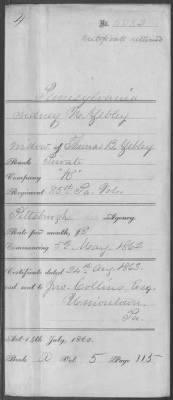 4
No. 5052
Certificate returned
Pennsylvania
Sidney M. Yebley
widow of Thomas B. Yebley
Rank Private
Company "K"
Regiment 85th Pa. Vols.
Pittsburgh Agency.
Rate per month, $8
Commencing 5th May, 1862
Certificate dated 24th Aug. 1863.
and sent to Jno. Collins, Esq.
Uniontown,
Pa.
Act 14th July, 1862.
Book A Vol. 5 Page 115